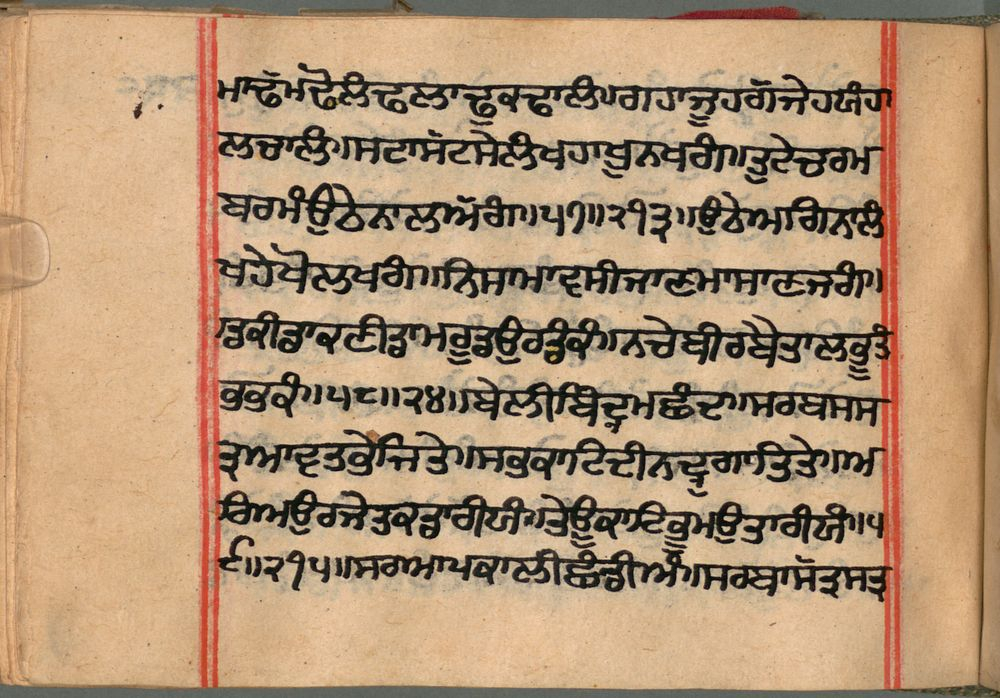 ਮਾਢੰਮਢੋਲੰਢਲਾਢੂਕਢਾਲੰ॥ਗਹਾਜੂਹਗੱਜੇਹਯੰਹਾ
ਲਚਾਲੰ॥ਸਟਾਸੱਟਸੇਲੰਖਹਾਖੂਨਖਗੰ॥ਤੁਟੇਚਰਮ
ਬਰਮੰਉਠੇਨਾਲਅੱਗੰ॥੫੭॥੨੧੩॥ਉਠੇਅਗਿਨਾਲੰ
ਖਹੇਖੋਲਖਗੰ॥ਨਿਸਾਮਾਵਸੀਜਾਣਮਾਸਾਣਜਗੰ॥
ਡਕੀਡਾਕਣੀਡਾਮਰੂਡਉਰਡੰਕੰ॥ਨਚੇਬੀਰਬੈਤਾਲਭੂਤੰ
ਭੁਭੁਕੰ॥੫੮॥੨੪॥ਬੇਲੀਬਿੰਦ੍ਰਮਛੰਦ॥ਸਰਬਸਸ
ਤ੍ਰਆਵਤਭੇਜਿਤੇ॥ਸਭਕਾਟਿਦੀਨਦ੍ਰੁਗਾਤਿਤੇ॥ਅ
ਰਿਅਉਰਜੇਤਕਡਾਰੀਯੰ॥ਤੇਊਕਾਟਿਭੂਮਉਤਾਰੀਯੰ॥੫
੯॥੨੧੫॥ਸਰਆਪਕਾਲੀਛੰਡੀਅੰ॥ਸਰਬਾਸੱਤ੍ਰਸਤ੍ਰ